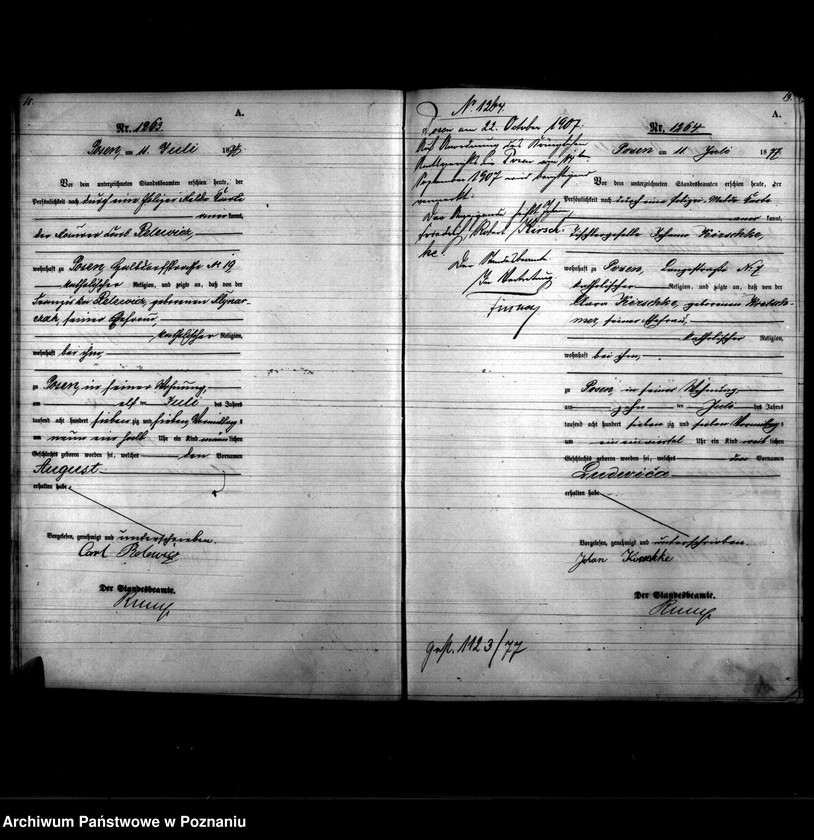 18.
A.
Nr. 1263.
Posen, am 11 Juli 1877
Vor dem unterzeichneten Standesbeamten erschien heute, der
Persönlichkeit nach durch eine Polizei Melde Karte
kannt,
der Maurer Carl Relewicz,
wohnhaft zu Posen, Halbdorfstrasse № 19,
katholischer Religion, und zeigte an, daß von der
Relewicz, geborenen
seiner Ehefrau
katholischer Religion,
wohnhaft bei ihm,
zu Posen, in seiner Wohnung,
am elf ten Juli des Jahres
tausend acht hundert sieben zig und sieben Vormittags
um neun ein halb Uhr ein Kind männlichen
Geschlechts geboren worden sei, welches den Vornamen
August
erhalten habe
Vorgelesen, genehmigt und unterschrieben.
Carl Relewicz
Der Standesbeamte.
№ 1264.
Posen am 22. October 1907.
Auf Anordnung des Königlichen
Amtsgerichts in Posen vom
September 1907 wird berichtigend
vermerkt:
Der Anzeigende heißt Johann
Robert Kirsch-
ke.
Der Standesbeamte
In Vertretung
gest. 1123/77
19.
A.
Nr. 1264
Posen am 11 Juli 1877
Vor dem unterzeichneten Standesbeamten erschien heute, der
Persönlichkeit nach durch eine Polizei-Melde Karte
kannt,
Tischlergeselle Johann Kirschke,
wohnhaft zu Posen, Langestraße № 7
katholischer Religion, und zeigte an, daß von der
Clara Kirschke, geborenen
seiner Ehefrau,
katholischer Religion,
wohnhaft bei ihm,
zu Posen, in seiner Wohnung
am zehn ten Juli des Jahres
tausend acht hundert sieben zig und sieben Vormittags
um ein einviertel Uhr ein Kind weiblichen
Geschlechts geboren worden sei, welches den Vornamen
Ludovica
erhalten habe
Vorgelesen, genehmigt und unterschrieben.
Johan Kirschke
Der Standesbeamte.
Archiwum Państwowe w Poznaniu